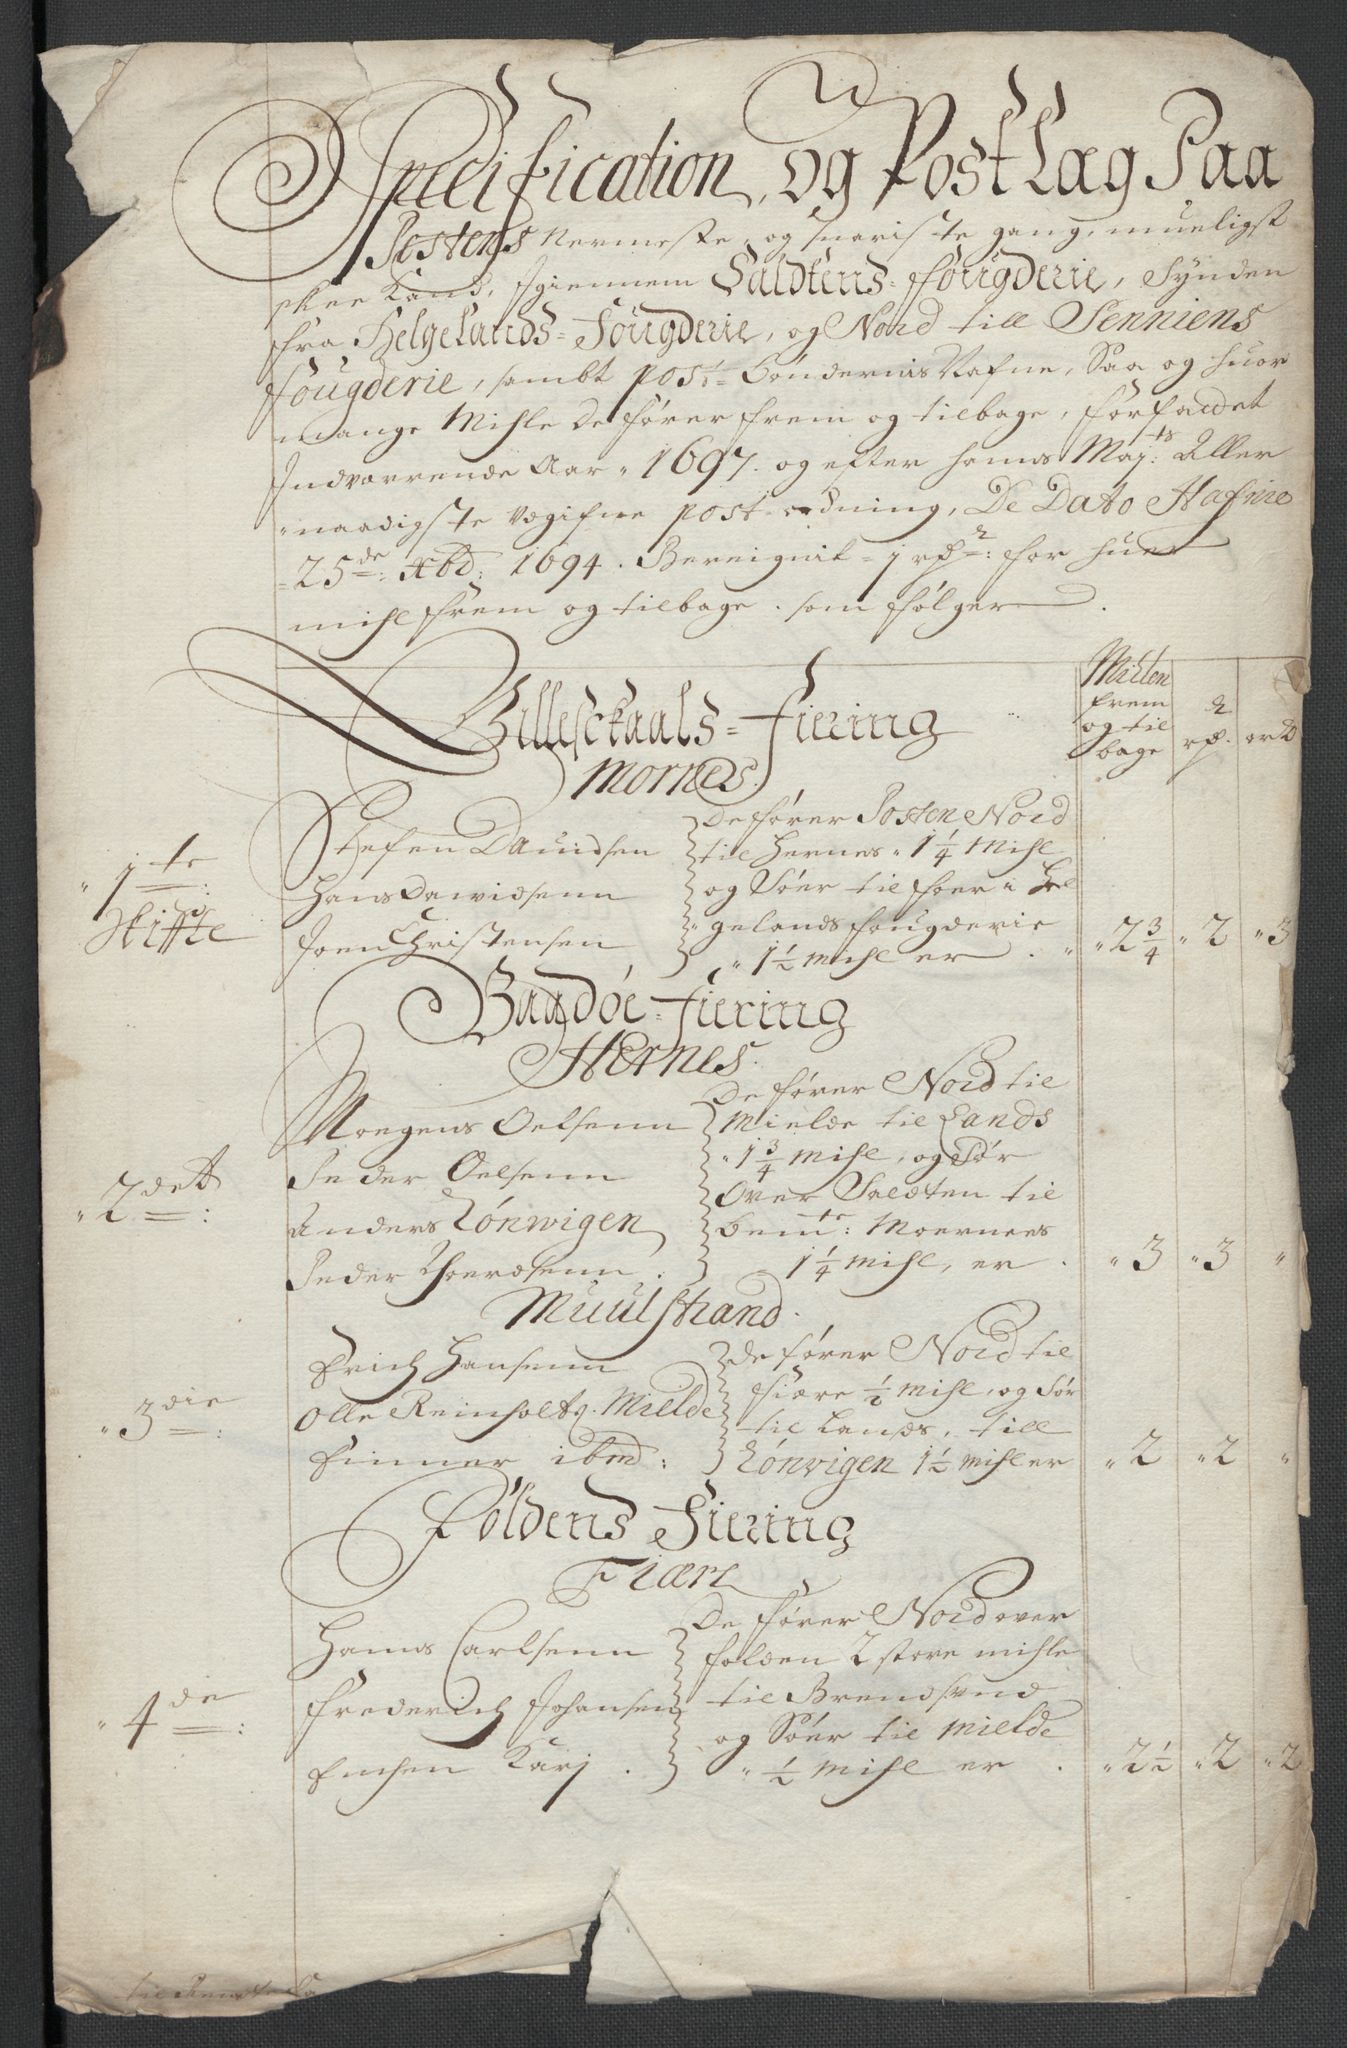 Specification, og Post Læg Paa
Postens Nermeste, og snariste gang, mueligst
skee Kand, Igiennem Saldtens Fougderie, Synden
fra Helgelands Fougderie, og Nord till Senniens
fougderie, sambt post-bøndernis Nafne, Saa og huor
mange Mihle de fører frem og tilbage, forfaldet
Indværrende Aar 1697. og efter hanns Maj:ts Aller
naadigste udgifne post-ordning, De Dato Hafniæ
25de: Xbd: 1694. Bereignit - 1 rdr: for huer
mihl frem og tilbage som følger.
Mihlen
frem
og til
bage
rdr.
ort
Gillesckaals-Fiering
Mornes.
1te:
Skiffte
Stefen Dauidsen
Hans Dawidsenn
Joen Christensen
De fører Posten Nord
til Hernes 1 1/4 Mihl
og Søer til foer i Hel
gelands fougderie
1 1/2 mihl er . 2 3/4 2 3
Baadøe-fiering
Hernes.
2det:
Moegens Oelsenn
Peder Oelsenn
Anders Lønwigen
Peder Thoersenn.
De fører Nord til
Mielde til Lands
1 3/4 mihl, og Sør
Over Saldten til
bem:te: Moernees
1 1/4 mihl, er . 3 3
Muulstrand.
3die:
Erich Hansenn
Olle Reinholts. Mielde
finner ibid:
de fører Nord til
fiære 1/2 mihl, og sør
til Lands, till
Lønvigen 1 1/2 mihl er 2 2
Foldens Fiering
Fiære
4de:
Hanns Carlsenn
Frederich Johansen
Enchen Karj.
De fører Nord over
folden 2 store mihle
til Brendsund
og Søer til Mielde
1/2 mihl er . 2 1/2 2 2